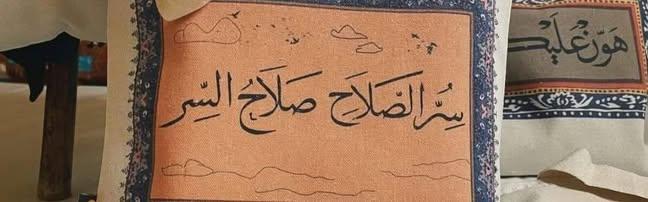 سُرُّ الصَّلَاحِ صَلَاحُ السِّر
هَوّنْ عَلَيْك